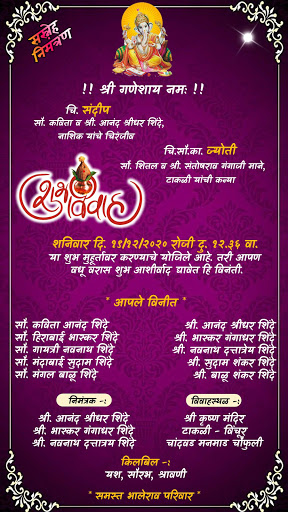 सस्नेह
निमंत्रण
!! श्री गणेशाय नमः !!
चि. संदीप
सौ. कविता व श्री. आनंद श्रीधर शिंदे,
नाशिक यांचे चिरंजीव
चि.सौ.का. ज्योती
सौ. शितल व श्री. संतोषराव गंगाजी माने,
टाकळी यांची कन्या
शुभ विवाह
शनिवार दि. १९/१२/२०२० रोजी दु. १२.३६ वा.
या शुभ मुहूर्तावर करण्याचे योजिले आहे. तरी आपण
वधू वरास शुभ आशीर्वाद द्यावेत हि विनंती.
* आपले विनीत *
सौ. कविता आनंद शिंदे
सौ. हिराबाई भास्कर शिंदे
सौ. गायत्री नवनाथ शिंदे
सौ. मंदाबाई सुदाम शिंदे
सौ. मंगल बाळू शिंदे
श्री. आनंद श्रीधर शिंदे
श्री. भास्कर गंगाधर शिंदे
श्री. नवनाथ दत्तात्रेय शिंदे
श्री. सुदाम शंकर शिंदे
श्री. बाळू शंकर शिंदे
निमंत्रक -:
श्री. आनंद श्रीधर शिंदे
श्री. भास्कर गंगाधर शिंदे
श्री. नवनाथ दत्तात्रय शिंदे
विवाहस्थळ -:
श्री कृष्ण मंदिर
टाकळी - विंचूर
चांदवड मनमाड चौफुली
किलबिल -:
यश, सौरभ, श्रावणी
* समस्त भालेराव परिवार *